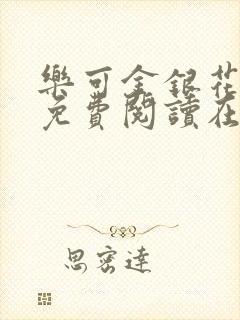 樂可金銀花
免費閱讀在
思密達